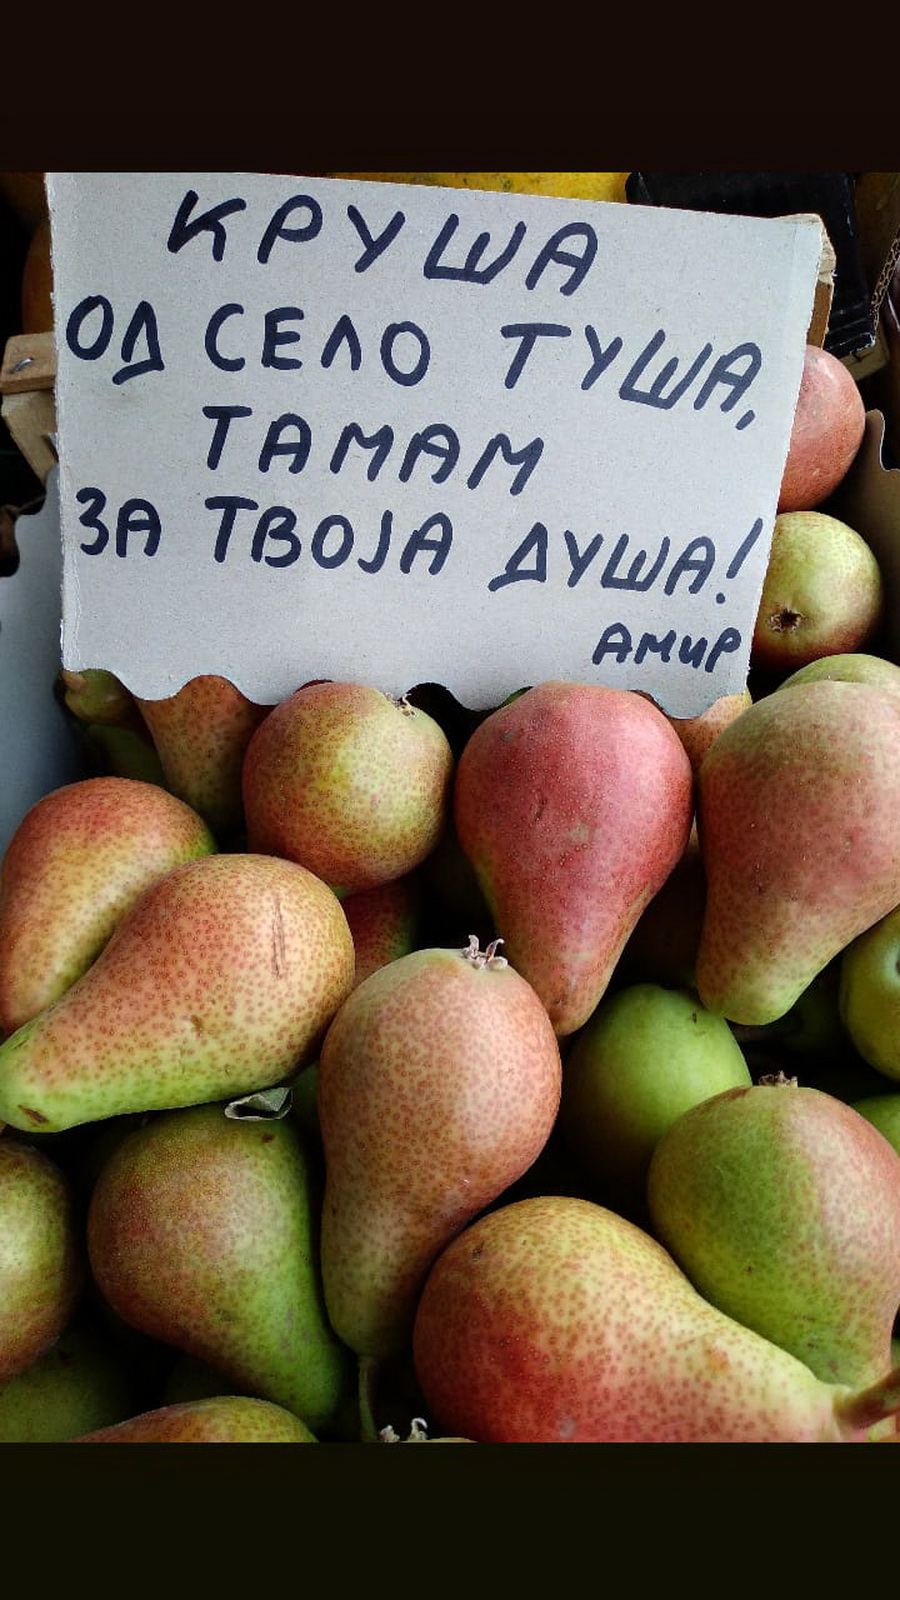 КРУША
ОД СЕЛО ТУША,
ТАМАМ
ЗА ТВОЈА ДУША!
АМИР